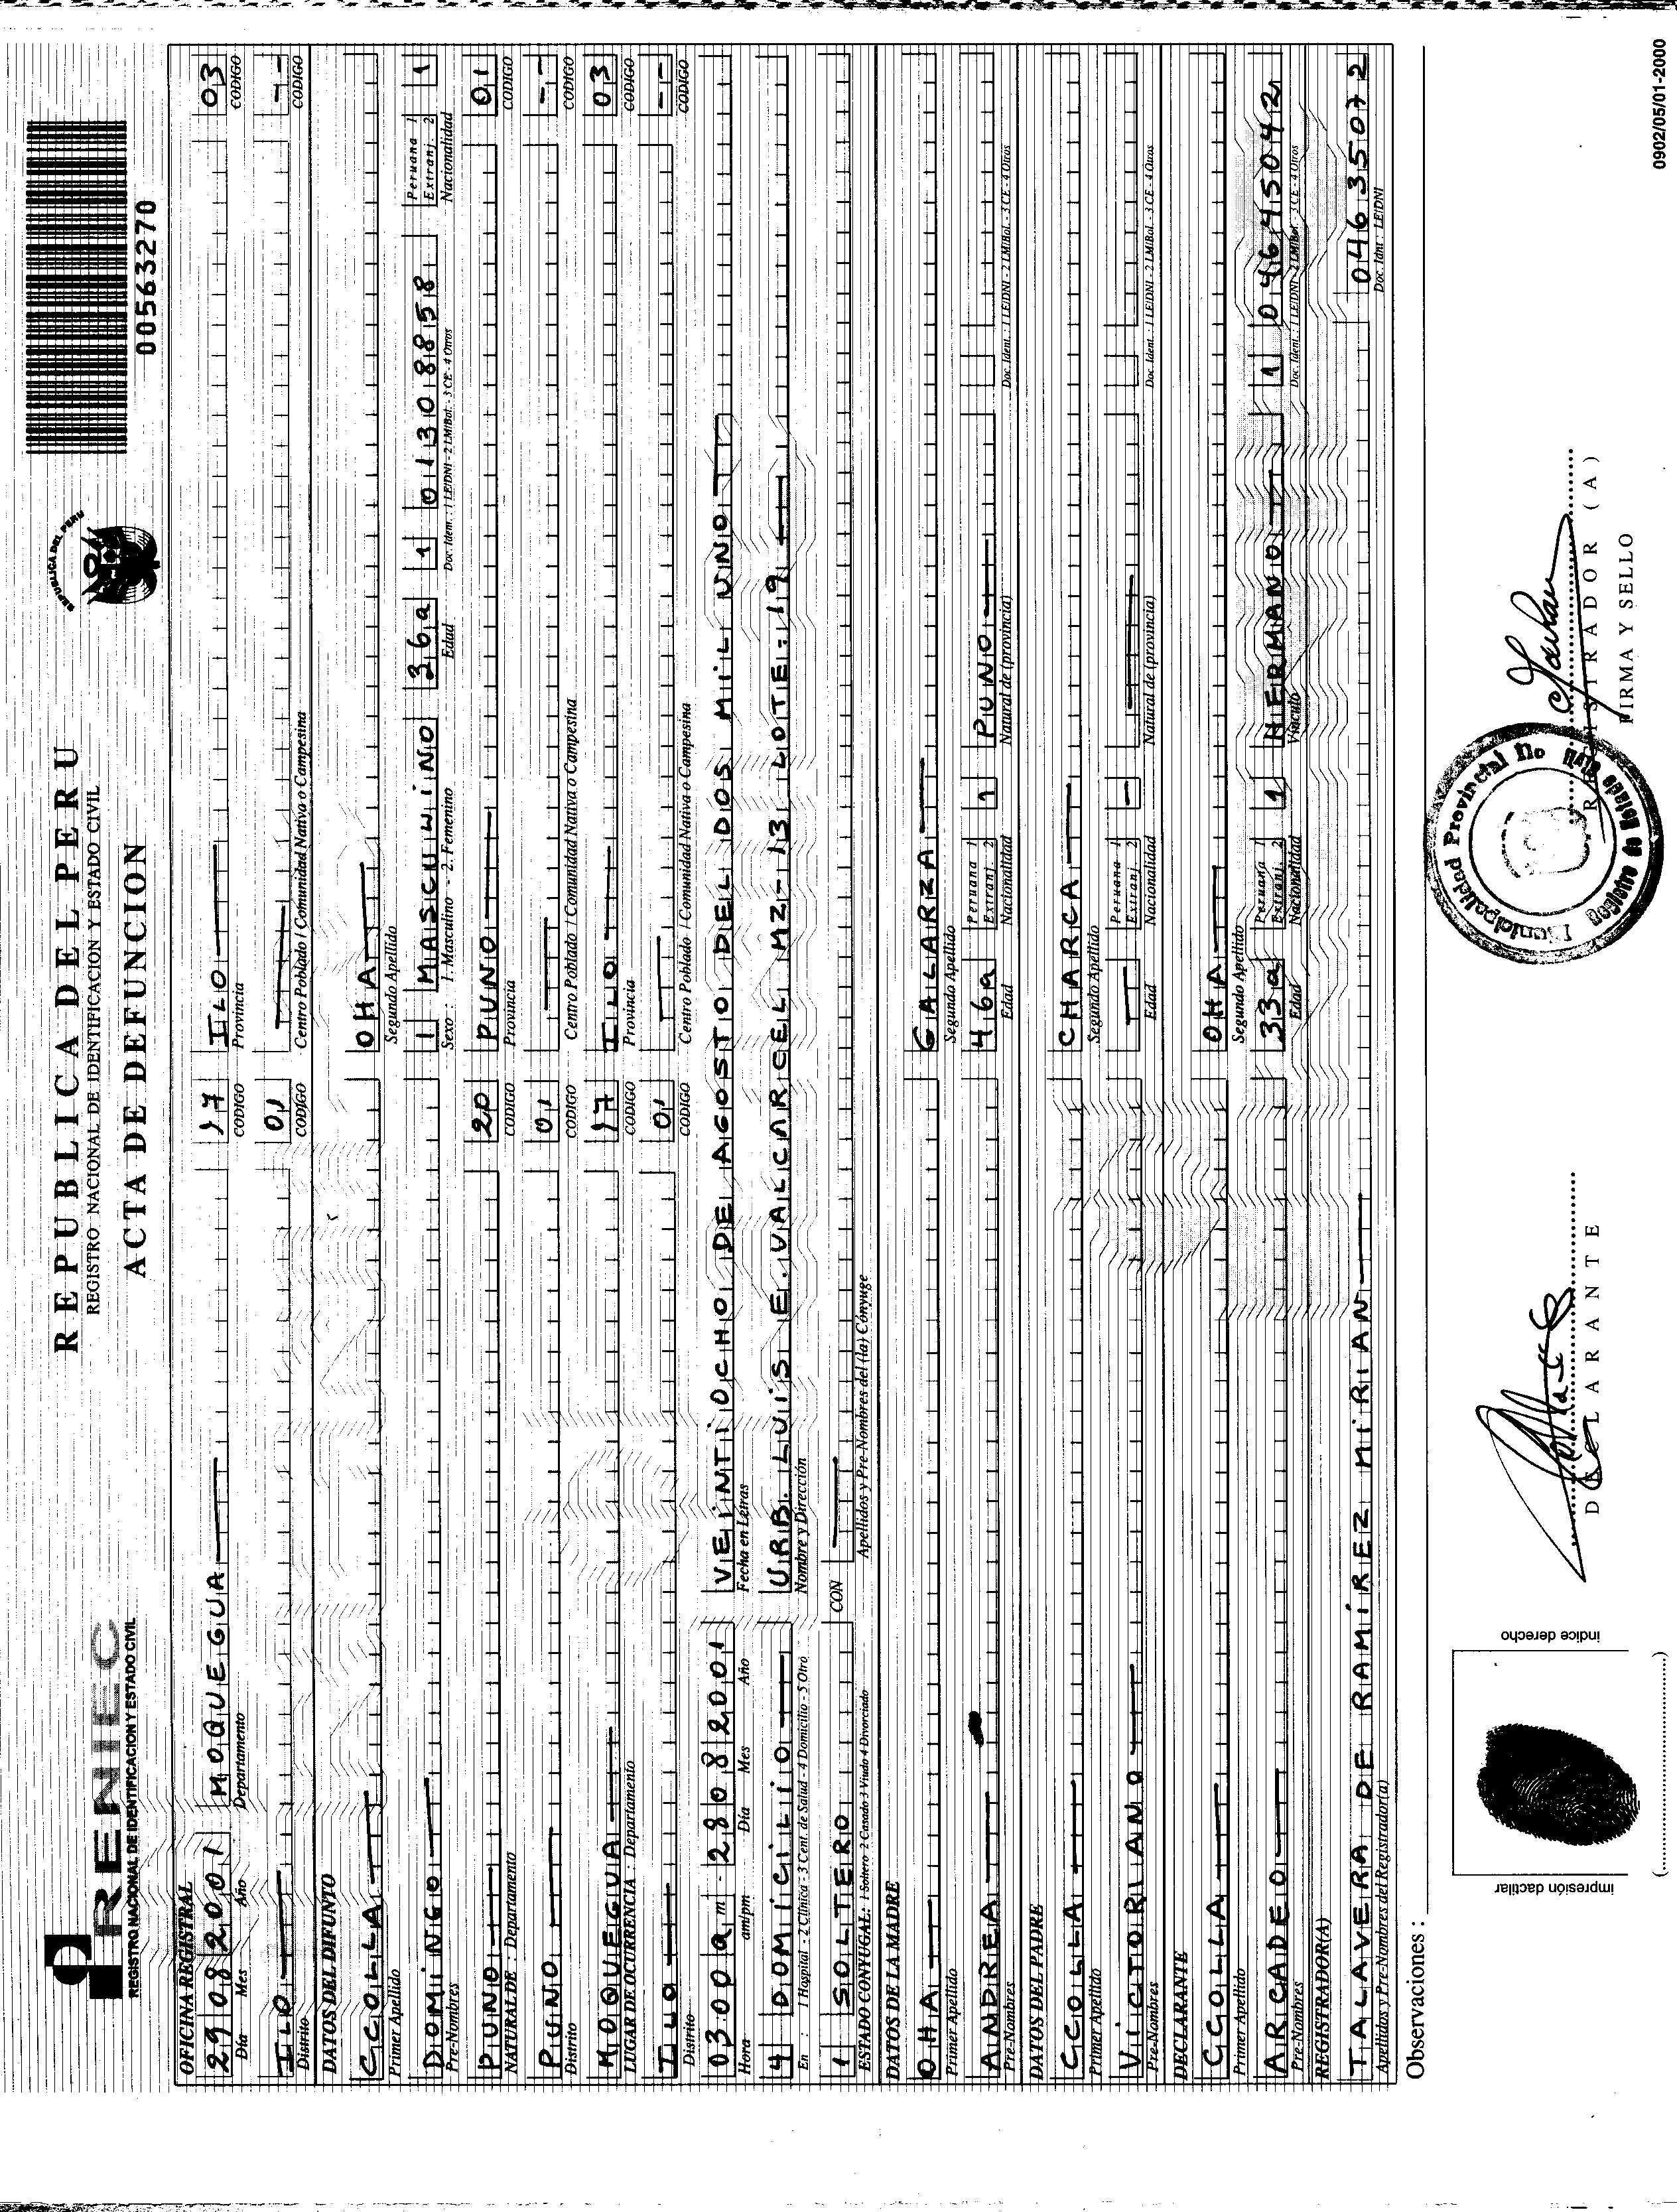 RENIEC
REGISTRO NACIONAL DE IDENTIFICACION Y ESTADO CIVIL
REPUBLICA DEL PERU
REGISTRO NACIONAL DE IDENTIFICACION Y ESTADO CIVIL
ACTA DE DEFUNCION
REPUBLICA DEL PERU
00563270
OFICINA REGISTRAL
29 08 2001 MOQUEGUA 17 ILO 03
Día Mes Año Departamento CODIGO Provincia CODIGO
ILO 01 --
Distrito CODIGO Centro Poblado / Comunidad Nativa o Campesina CODIGO
DATOS DEL DIFUNTO
CCOLLA OHA
Primer Apellido Segundo Apellido
DOMINGO 1 MASCULINO 36a 1 01308858 Peruana 1 Extranj. 2 1
Pre-Nombres Sexo: 1. Masculino - 2. Femenino Edad Doc. Iden.: 1 LE/DNI - 2 LM/Bol. - 3 CE - 4 Otros Nacionalidad
PUNO 20 PUNO 01
NATURAL DE Departamento CODIGO Provincia CODIGO
PUNO 01 --
Distrito CODIGO Centro Poblado / Comunidad Nativa o Campesina CODIGO
MOQUEGUA 17 ILO 03
LUGAR DE OCURRENCIA: Departamento CODIGO Provincia CODIGO
ILO 01 --
Distrito CODIGO Centro Poblado / Comunidad Nativa o Campesina CODIGO
03:00 am - 28 08 2001 VEINTIOCHO DE AGOSTO DEL DOS MIL UNO
Hora am/pm Día Mes Año Fecha en Letras
4 DOMICILIO URB. LUIS E. VALCARCEL MZ-13 LOTE:19
En: 1 Hospital - 2 Clínica - 3 Cent. de Salud - 4 Domicilio - 5 Otro Nombre y Dirección
1 SOLTERO CON
ESTADO CONYUGAL: 1 Soltero 2 Casado 3 Viudo 4 Divorciado Apellidos y Pre-Nombres del (la) Cónyuge
DATOS DE LA MADRE
OHA GALARZA
Primer Apellido Segundo Apellido
ANDREA 46a Peruana 1 Extranj. 2 1 PUNO
Pre-Nombres Edad Nacionalidad Natural de (provincia) Doc. Iden.: 1 LE/DNI - 2 LM/Bol. - 3 CE - 4 Otros
DATOS DEL PADRE
CCOLLA CHARCA
Primer Apellido Segundo Apellido
VICTORIANO Peruana 1 Extranj. 2 -
Pre-Nombres Edad Nacionalidad Natural de (provincia) Doc. Iden.: 1 LE/DNI - 2 LM/Bol. - 3 CE - 4 Otros
DECLARANTE
CCOLLA OHA
Primer Apellido Segundo Apellido
ARCADEO 33a Peruana 1 Extranj. 2 1 HERMANO 1 04645042
Pre-Nombres Edad Nacionalidad Vínculo Doc. Iden.: 1 LE/DNI - 2 LM/Bol. - 3 CE - 4 Otros
REGISTRADOR(A)
TALAVERA DE RAMÍREZ MIRIAN 04635072
Apellidos y Pre-Nombres del Registrador(a) Doc. Idnt: LE/DNI
Observaciones:
impresión dactilar
índice derecho
DECLARANTE
Municipalidad Provincial Ilo
Registro de Estado Civil
REGISTRADOR (A)
FIRMA Y SELLO
0902/05/01-2000